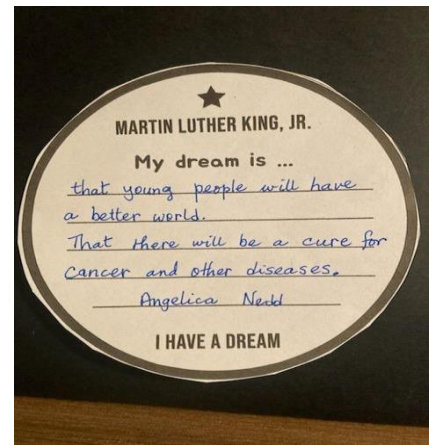 MARTIN LUTHER KING, JR.
My dream is ...
that young people will have
a better world.
That there will be a cure for
cancer and other diseases.
Angelica Nedd
I HAVE A DREAM